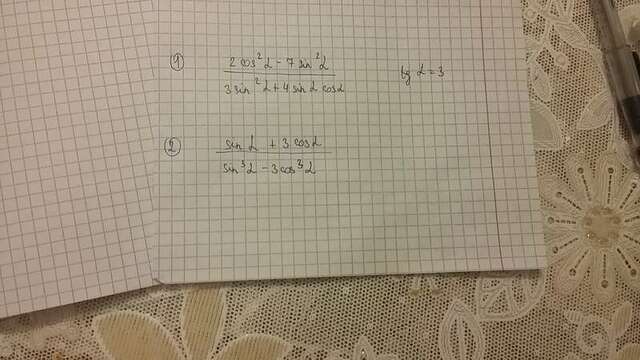 ① 2cos²α - 7sin²α / 3sin²α + 4sinα cosα tg α = 3
② sinα + 3cosα / sin³α - 3cos³α